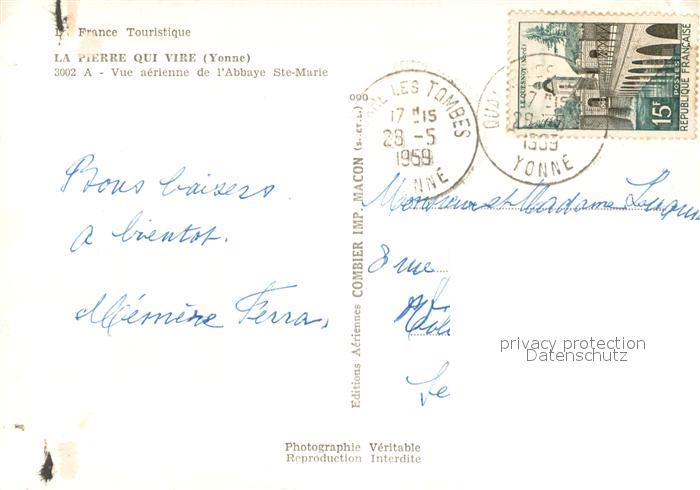 La France Touristique
LA PIERRE QUI VIRE (Yonne)
3002 A - Vue aérienne de l'Abbaye Ste-Marie
Bons baisers.
A bientot.
Mémère Ferra
Editions Aériennes COMBIER IMP. MACON (S.-ET-L.)
LES TOMBES
17H15
28-5
1959
YONNE
QUA
17H15
28-5
1959
YONNE
LE QUESNOY (Nord)
15F
POSTES
REPUBLIQUE FRANÇAISE
Monsieur et Madame
8 rue
privacy protection
Datenschutz
Photographie Véritable
Reproduction Interdite